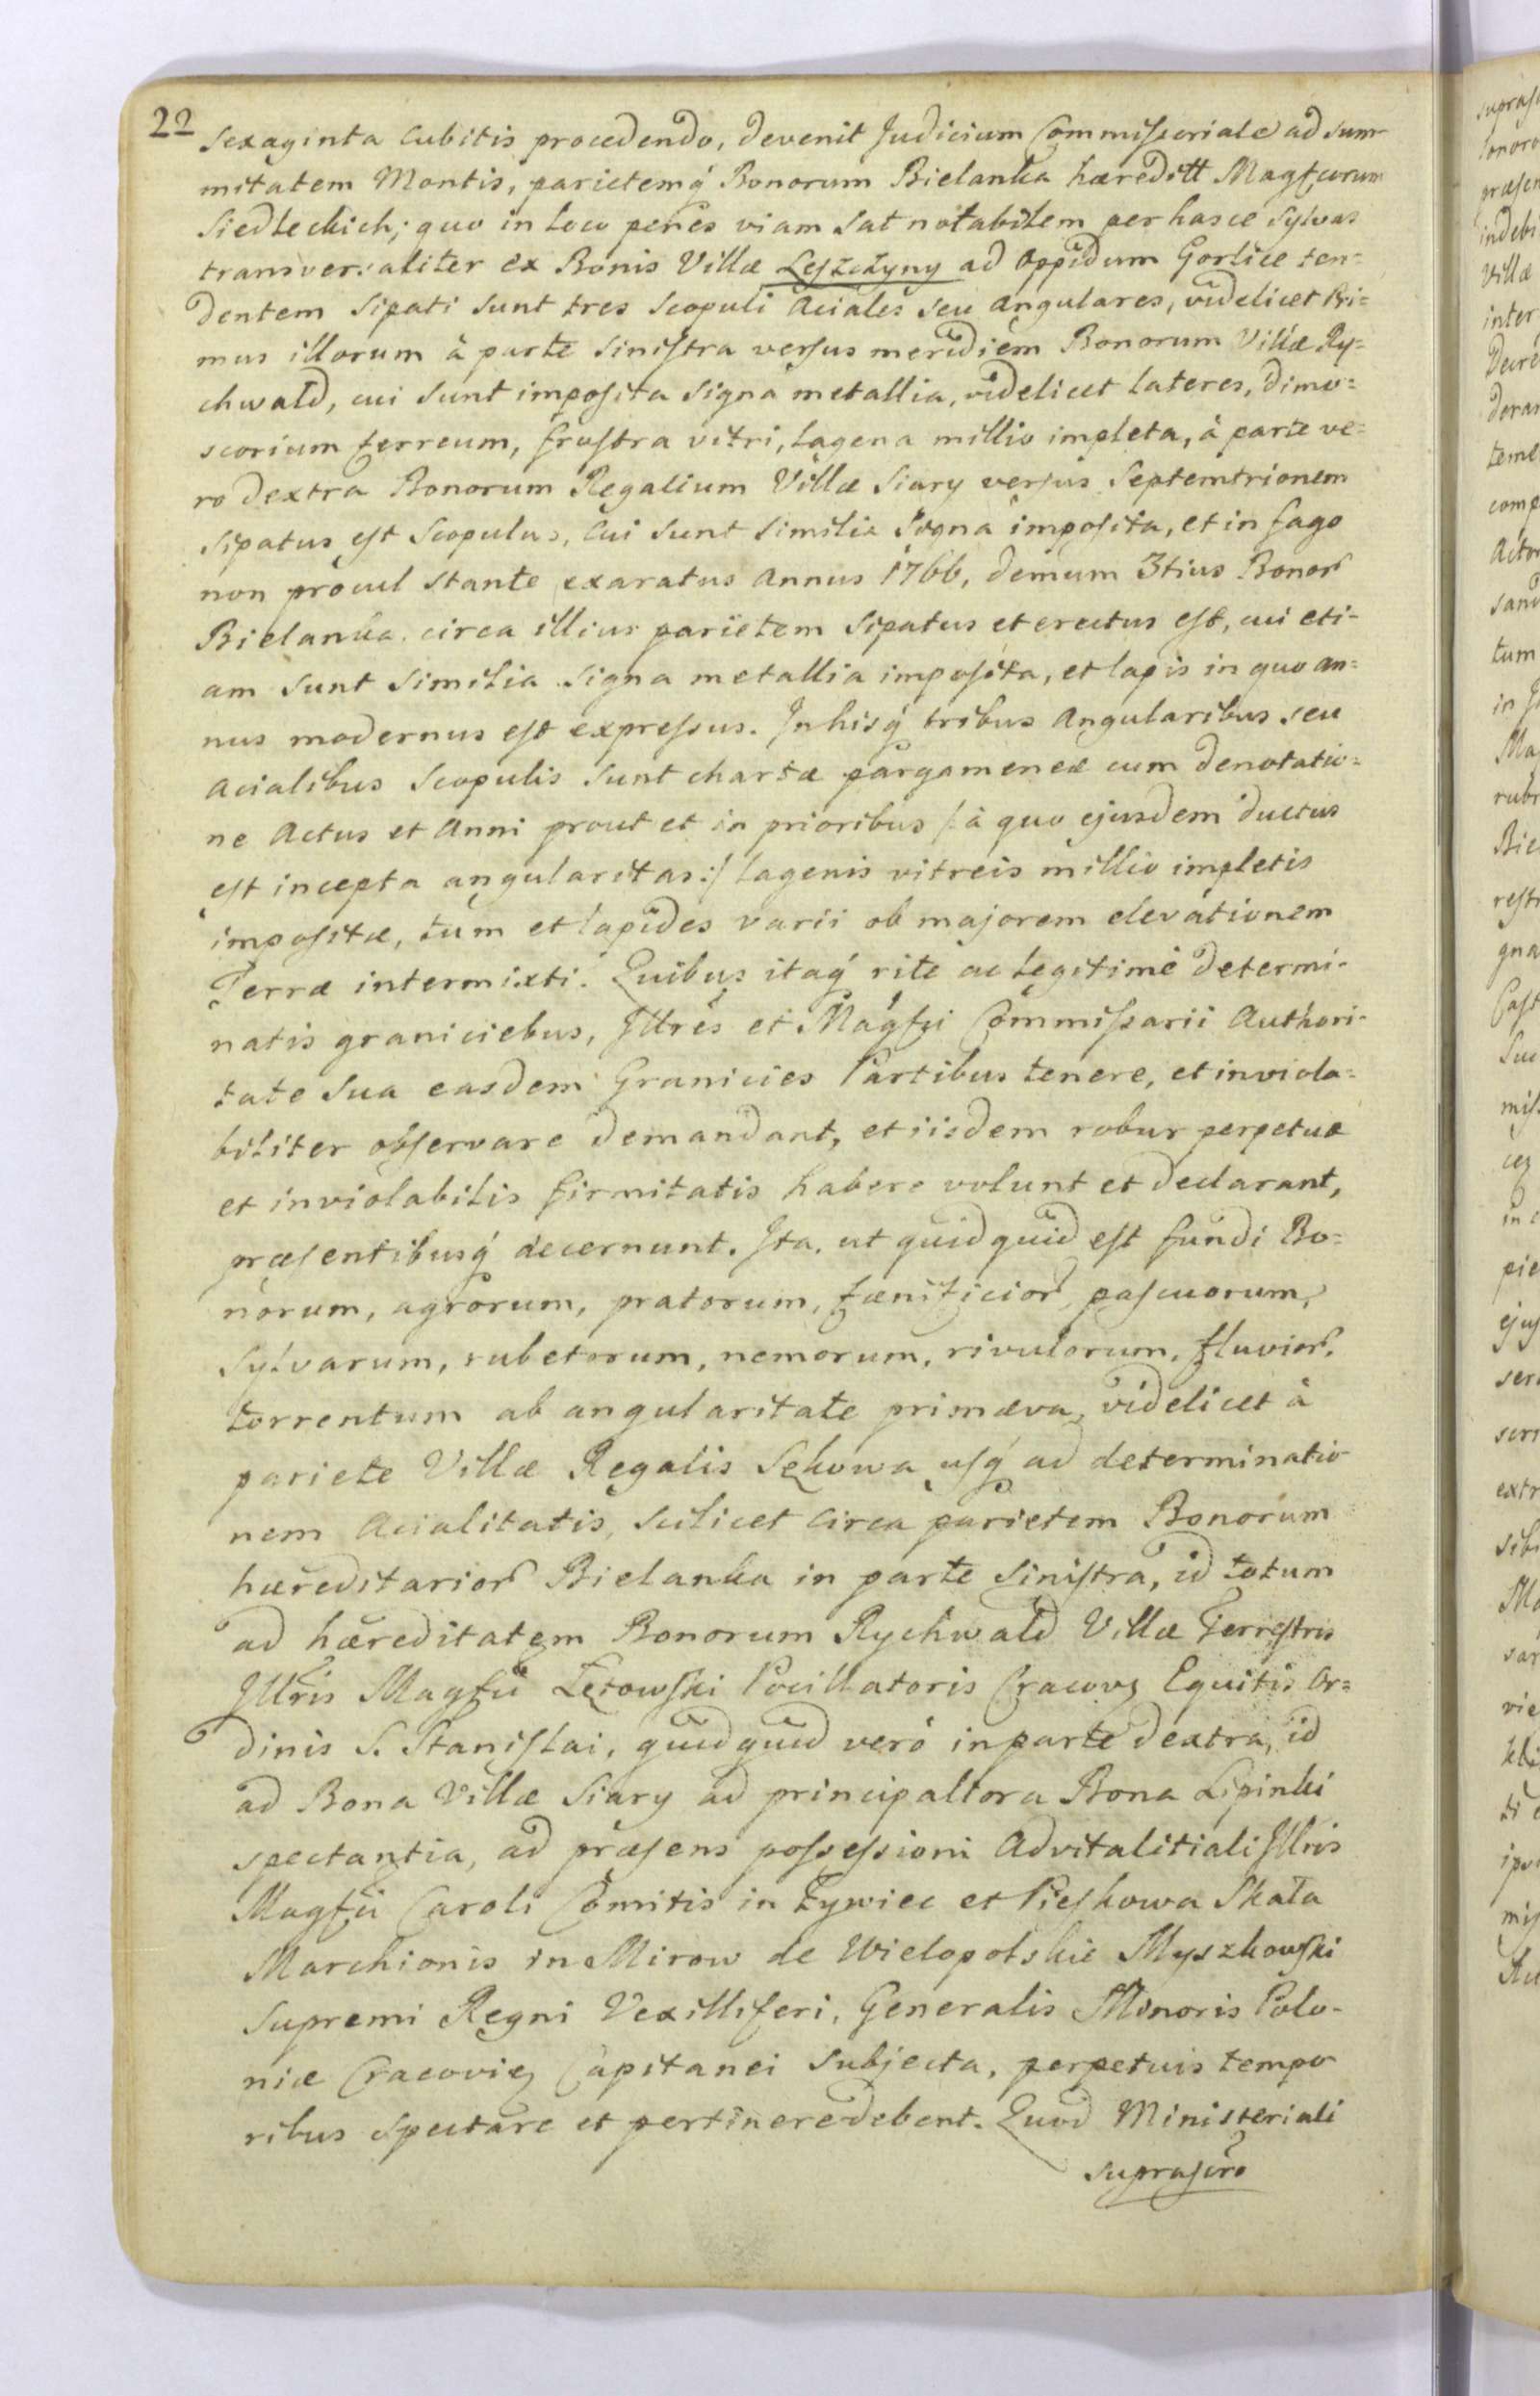 22
Sexaginta Cubitis procedendo, devenit Judicium Commissoriale ad sum-
mitatem Montis, parietemq́ Bonorum Bielanka hæreditt Magfcorum
Siedleckich; quo in loco penès viam sat notabilem per hasce Sylvas
transversaliter ex Bonis Villæ Leszczyny ad Oppidum Gorlice ten=
dentem Sipati sunt tres Scopuli Aciales seu Angulares, videlicet Pri=
mus illorum à parte sinistra versus meridiem Bonorum Villæ Ry=
chwald, cui sunt imposita Signa metallia, videlicet lateres, dimo=
scorium ferreum, frustra vitri, lagena millio impleta, à parte ve=
ro dextra Bonorum Regalium Villæ Siary versus Septemtrionem
Sipatus est Scopulus, Cui sunt similia Signa imposita, et in fago
non procul stante exaratus Annus 1766, demum 3tius Bonor
Bielanka circa illius parietem Sipatus et erectus est, cui eti-
am sunt similia Signa metallia imposita, et lapis in quo an=
nus modernus est expressus. In hisq́ tribus Angularibus seu
Acialibus Scopulis sunt chartæ pargameneæ cum denotatio=
ne Actus et Anni prout et in prioribus /: à quo ejusdem ductus
est incepta angularitas :/ lagenis vitreis millio impletis
impositæ, tum et lapides varii ob majorem elevationem
Terræ intermixti. Quibus itaq́ rite ac legitimè determi-
natis graniciebus, Illres et Magfci Commissarii Authori-
tate Sua easdem Granicies Partibus tenere, et inviola=
biliter observare demandant, et iisdem robur perpetuæ
et inviolabilis firmitatis habere volunt et declarant,
præsentibusq́ decernunt. Ita, ut quidquid est fundi Bo=
norum, agrorum, pratorum, fænificior, pascuorum,
Sylvarum, rubetorum, nemorum, rivulorum, fluvior,
torrentum ab angularitate primæva, videlicet à
pariete Villæ Regalis Sękowa usq́ ad determinatio
nem Acialitatis, scilicet circa parietem Bonorum
hæreditarior Bielanka in parte sinistra, id totum
ad hæreditatem Bonorum Rychwald Villæ Terrestris
Illris Magfci Łętowski Pocillatoris Cracovę Equitis Or=
dinis S. Stanislai, quidquid verò in parte dextra, id
ad Bona Villæ Siary ad principaliora Bona Lipinki
spectantia, ad præsens possessioni Advitalitiali Illris
Magfci Caroli Comitis in Żywiec et Pieskowa Skała
Marchionis in Mirow de Wielopolskie Myszkowski
Supremi Regni Vexilliferi, Generalis Minoris Polo-
niæ Cracovię Capitanei Subjecta, perpetuis tempo
ribus Spectare et pertinere debent. Quod Ministeriali
suprascro